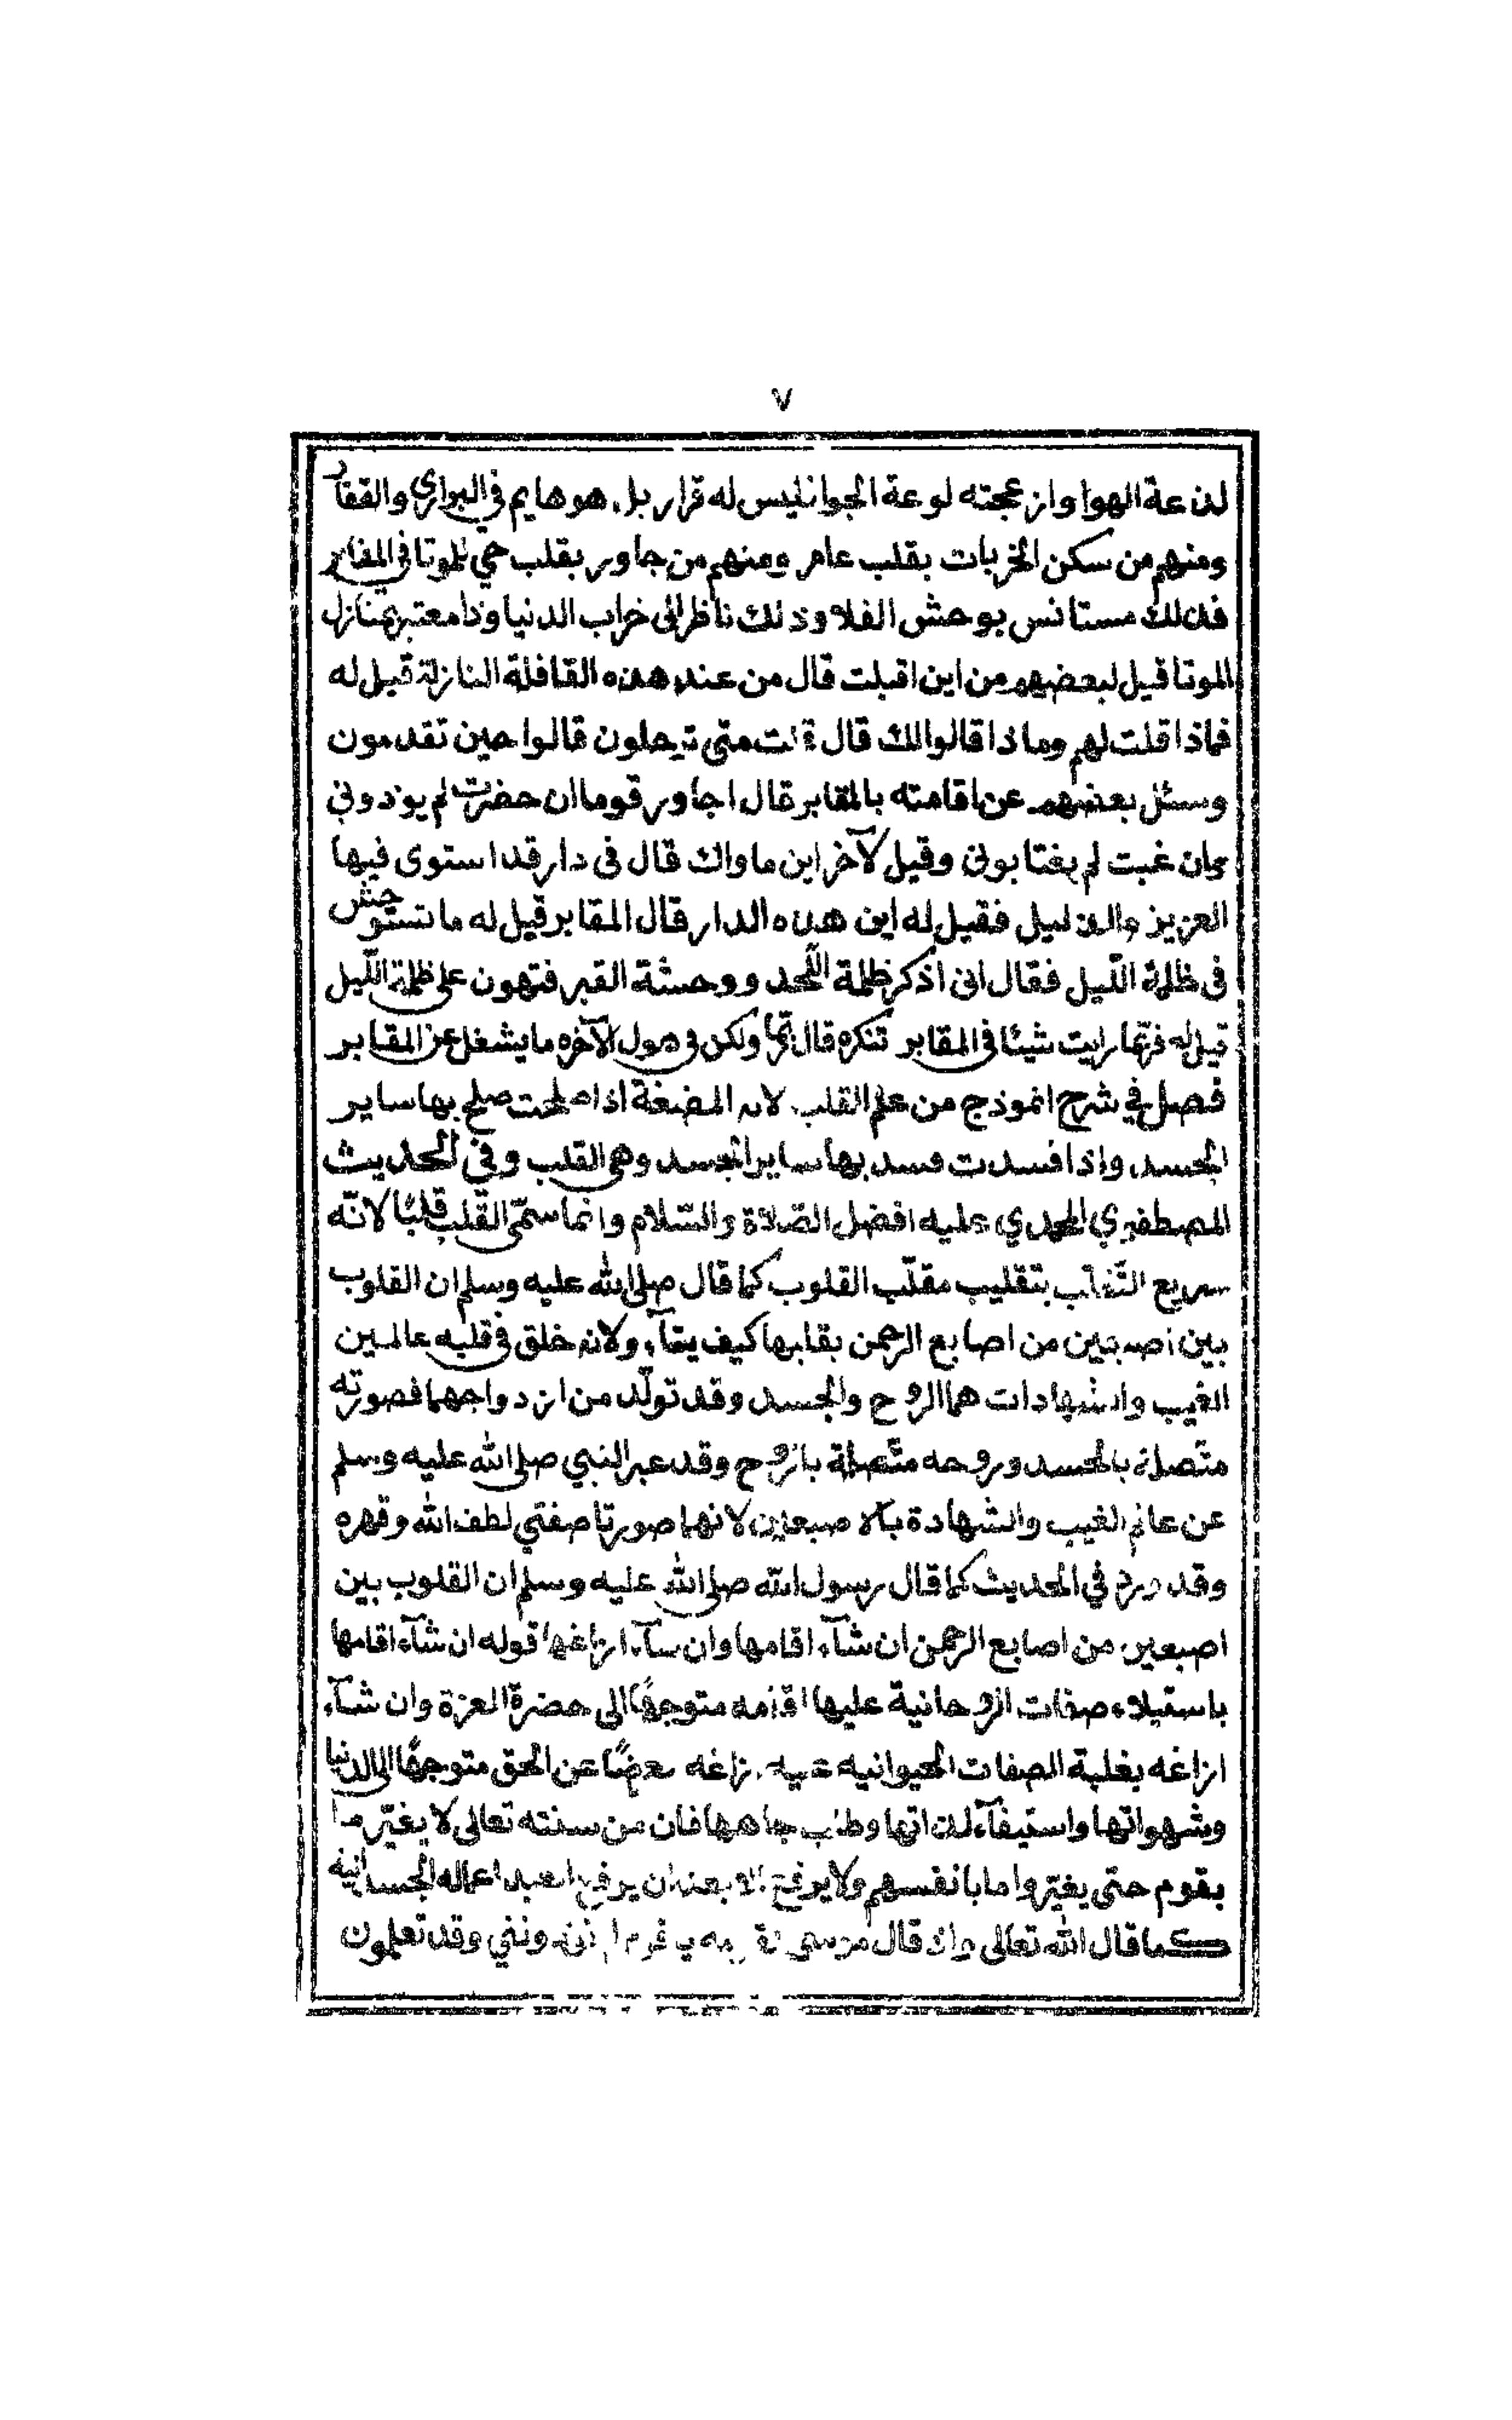 ٧
لذعة الهوا وازعجته لوعة الجوا ليس له قرار بل هو هايم في البراري والقفار
ومنهم من سكن الخربات بقلب عامر ومنهم من جاور بقلب حي للموتا في المقابر
فذلك مستانس بوحش الفلا وذلك ناظر الى خراب الدنيا وذا معتبر بمنازل
الموتا قيل لبعضهم من اين اقبلت قال من عند هذه القافلة النازلة قيل له
فماذا قلت لهم وماذا قالوا لك قال قلت متى ترحلون قالوا حين تقدمون
وسئل بعضهم عن اقامته بالمقابر قال اجاور قوما ان حضرت لم يوذوني
وان غبت لم يغتابوني وقيل لآخر اين ماواك قال في دار قد استوى فيها
العزيز والذليل فقيل له اين هذه الدار قال المقابر قيل له ما تستوحش
في ظلمة اللّيل فقال اني اذكر ظلمة اللّحد ووحشة القبر فتهون على ظلمة اللّيل
قيل له فربّما رايت شيئا في المقابر تنكره قال ربّما ولكن في هول الآخره ما يشغل عن المقابر
فصل في شرح انموذج من علم القلب لانه المضغة اذا صلحت صلح بها ساير
الجسد واذا فسدت فسد بها ساير الجسد وهي القلب وفي الحديث
المصطفوي المحمدي عليه افضل الصّلاة والسّلام وانما سمّى القلب قلبًا لانّه
سريع التّقلّب بتقليب مقلّب القلوب كما قال صلى الله عليه وسلم ان القلوب
بين اصبعين من اصابع الرحمن يقلبها كيف يشآء ولانه خلق في قلبه عالمين
الغيب والشهادات هما الروح والجسد وقد تولّد من ازدواجهما فصورته
متّصلة بالجسد وروحه متّصلة بالروح وقد عبر النبي صلى الله عليه وسلم
عن عالم الغيب والشهادة بالاصبعين لانهما صورتا صفتي لطف الله وقهره
وقد ورد في الحديث كما قال رسول الله صلى الله عليه وسلم ان القلوب بين
اصبعين من اصابع الرحمن ان شآء اقامها وان شآء ازاغها قوله ان شآء اقامها
باستيلاء صفات الروحانية عليها اقامه متوجهًا الى حضرة العزة وان شآء
ازاغه بغلبة الصفات الحيوانيه عليه ازاغه معرضًا عن الحق متوجهًا الى الدنيا
وشهواتها واستيفآء لذاتها وطلب جاهها فان من سنته تعالى لا يغيّر ما
بقوم حتى يغيّروا ما بانفسهم ولا يرفع الا بعد ان يرفع العبد اعماله الجسمانية
كما قال الله تعالى واذ قال موسى لقومه يا قوم لم تؤذونني وقد تعلمون